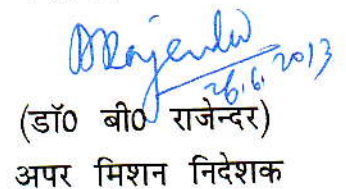 BRajender
26.6.2013
(डॉ0 बी0 राजेन्दर)
अपर मिशन निदेशक